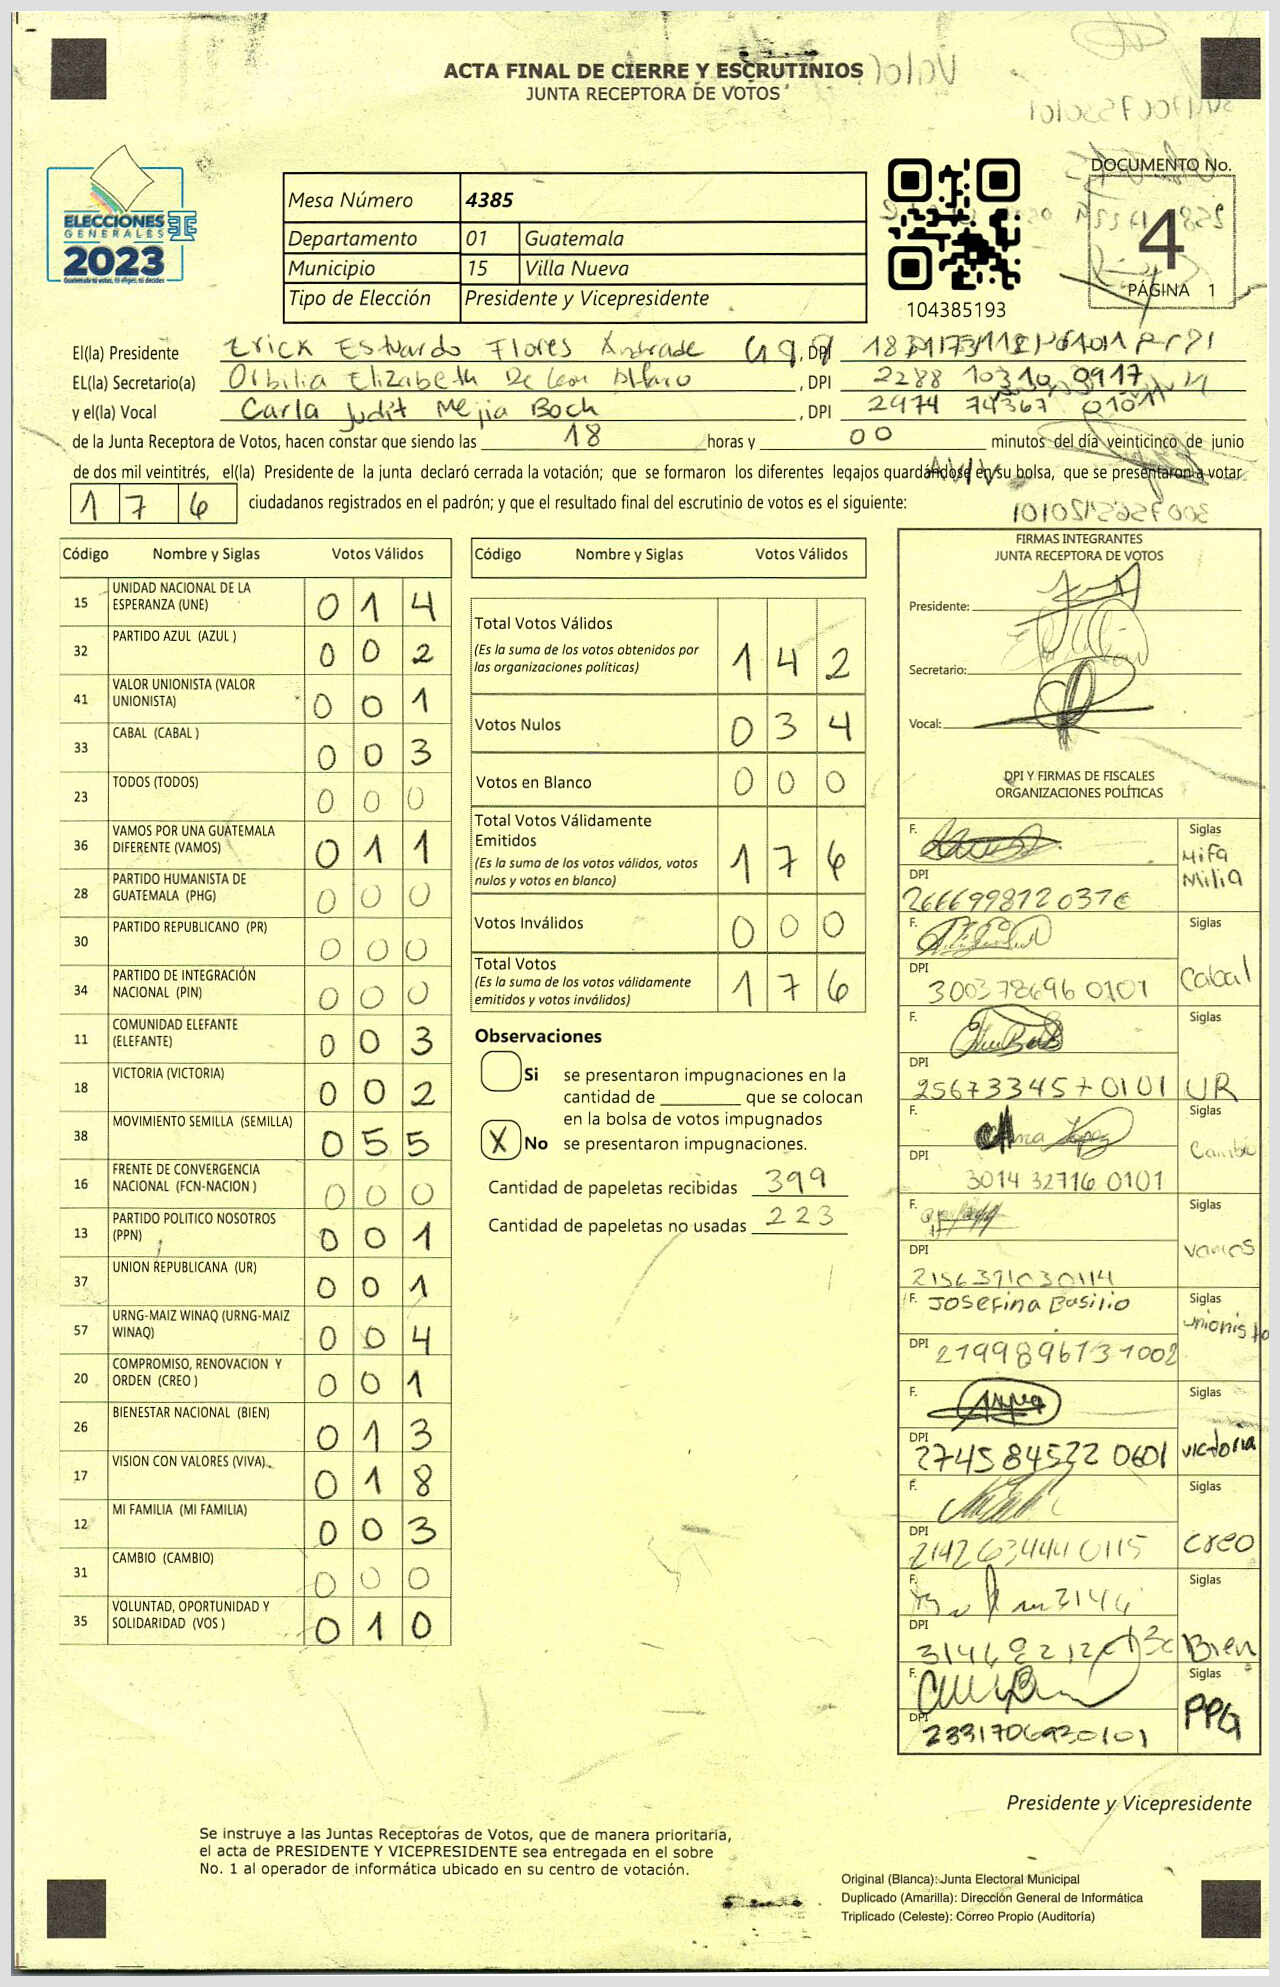 ACTA FINAL DE CIERRE Y ESCRUTINIOS
JUNTA RECEPTORA DE VOTOS
ELECCIONES
GENERALES
2023
Mesa Número 4385
Departamento 01 Guatemala
Municipio 15 Villa Nueva
Tipo de Elección Presidente y Vicepresidente
104385193
DOCUMENTO No.
4
PÁGINA 1
El(la) Presidente Erick Estuardo Flores Andrade , DPI
EL(la) Secretario(a) Orbilia Elizabeth De Leon Alfaro , DPI 2288 10310 0917
y el(la) Vocal Carla Judit Mejia Boch , DPI 2974 74367 0101
de la Junta Receptora de Votos, hacen constar que siendo las 18 horas y 00 minutos del día veinticinco de junio
de dos mil veintitrés, el(la) Presidente de la junta declaró cerrada la votación; que se formaron los diferentes legajos quardándose en su bolsa, que se presentaron a votar
176 ciudadanos registrados en el padrón; y que el resultado final del escrutinio de votos es el siguiente:
Código Nombre y Siglas Votos Válidos
15 UNIDAD NACIONAL DE LA ESPERANZA (UNE) 014
32 PARTIDO AZUL (AZUL ) 002
41 VALOR UNIONISTA (VALOR UNIONISTA) 001
33 CABAL (CABAL ) 003
23 TODOS (TODOS) 000
36 VAMOS POR UNA GUATEMALA DIFERENTE (VAMOS) 011
28 PARTIDO HUMANISTA DE GUATEMALA (PHG) 000
30 PARTIDO REPUBLICANO (PR) 000
34 PARTIDO DE INTEGRACIÓN NACIONAL (PIN) 000
11 COMUNIDAD ELEFANTE (ELEFANTE) 003
18 VICTORIA (VICTORIA) 002
38 MOVIMIENTO SEMILLA (SEMILLA) 055
16 FRENTE DE CONVERGENCIA NACIONAL (FCN-NACION ) 000
13 PARTIDO POLITICO NOSOTROS (PPN) 001
37 UNION REPUBLICANA (UR) 001
57 URNG-MAIZ WINAQ (URNG-MAIZ WINAQ) 004
20 COMPROMISO, RENOVACION Y ORDEN (CREO ) 001
26 BIENESTAR NACIONAL (BIEN) 013
17 VISION CON VALORES (VIVA) 018
12 MI FAMILIA (MI FAMILIA) 003
31 CAMBIO (CAMBIO) 000
35 VOLUNTAD, OPORTUNIDAD Y SOLIDARIDAD (VOS ) 010
Código Nombre y Siglas Votos Válidos
Total Votos Válidos 142
(Es la suma de los votos obtenidos por
las organizaciones políticas)
Votos Nulos 034
Votos en Blanco 000
Total Votos Válidamente
Emitidos 176
(Es la suma de los votos válidos, votos
nulos y votos en blanco)
Votos Inválidos 000
Total Votos 176
(Es la suma de los votos válidamente
emitidos y votos inválidos)
Observaciones
Si se presentaron impugnaciones en la
cantidad de ________ que se colocan
en la bolsa de votos impugnados
X No se presentaron impugnaciones.
Cantidad de papeletas recibidas 399
Cantidad de papeletas no usadas 223
FIRMAS INTEGRANTES
JUNTA RECEPTORA DE VOTOS
Presidente:
Secretario:
Vocal:
DPI Y FIRMAS DE FISCALES
ORGANIZACIONES POLÍTICAS
F. Siglas
Mi Fa
Milia
DPI
F. Siglas
Cabal
DPI 300378696 0101
F. Siglas
UR
DPI 2567334570101
F. Siglas
Cambio
DPI 3014 32716 0101
F. Siglas
Vamos
DPI 2156371030114
F. Josefina Basilio Siglas
unionista
DPI 2199896131002
F. Siglas
victoria
DPI 274584522 0601
F. Siglas
Creo
DPI 2142634440115
F. Siglas
Bien
DPI
F. Siglas
PPG
DPI 2331706930101
Presidente y Vicepresidente
Se instruye a las Juntas Receptoras de Votos, que de manera prioritaria,
el acta de PRESIDENTE Y VICEPRESIDENTE sea entregada en el sobre
No. 1 al operador de informática ubicado en su centro de votación.
Original (Blanca): Junta Electoral Municipal
Duplicado (Amarilla): Dirección General de Informática
Triplicado (Celeste): Correo Propio (Auditoría)